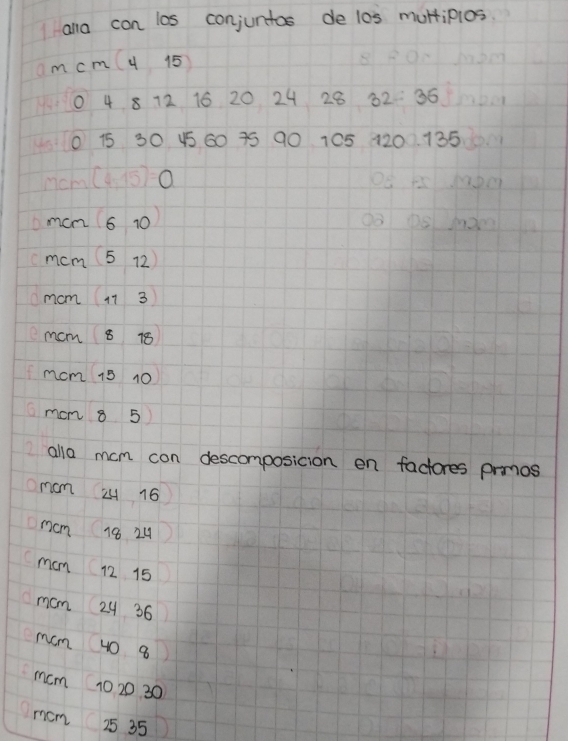 1. Halla con los conjuntos de los multiplos.
a mcm (4, 15)
M4={0 4 8 12 16 20 24 28 32 36}
M15={0 15 30 45 60 75 90 105 120 135
mcm (4,15)=0
b mcm (6 10)
c mcm (5 12)
d mcm (11 3)
e mcm (8 18)
f mcm (15 10)
G mcm (8 5)
2 Halla mcm con descomposición en factores primos
a mcm (24, 16)
b mcm (18, 24)
c mcm (12, 15)
d mcm (24 36)
e mcm (40 8)
f mcm (10,20,30)
g mcm (25 35)